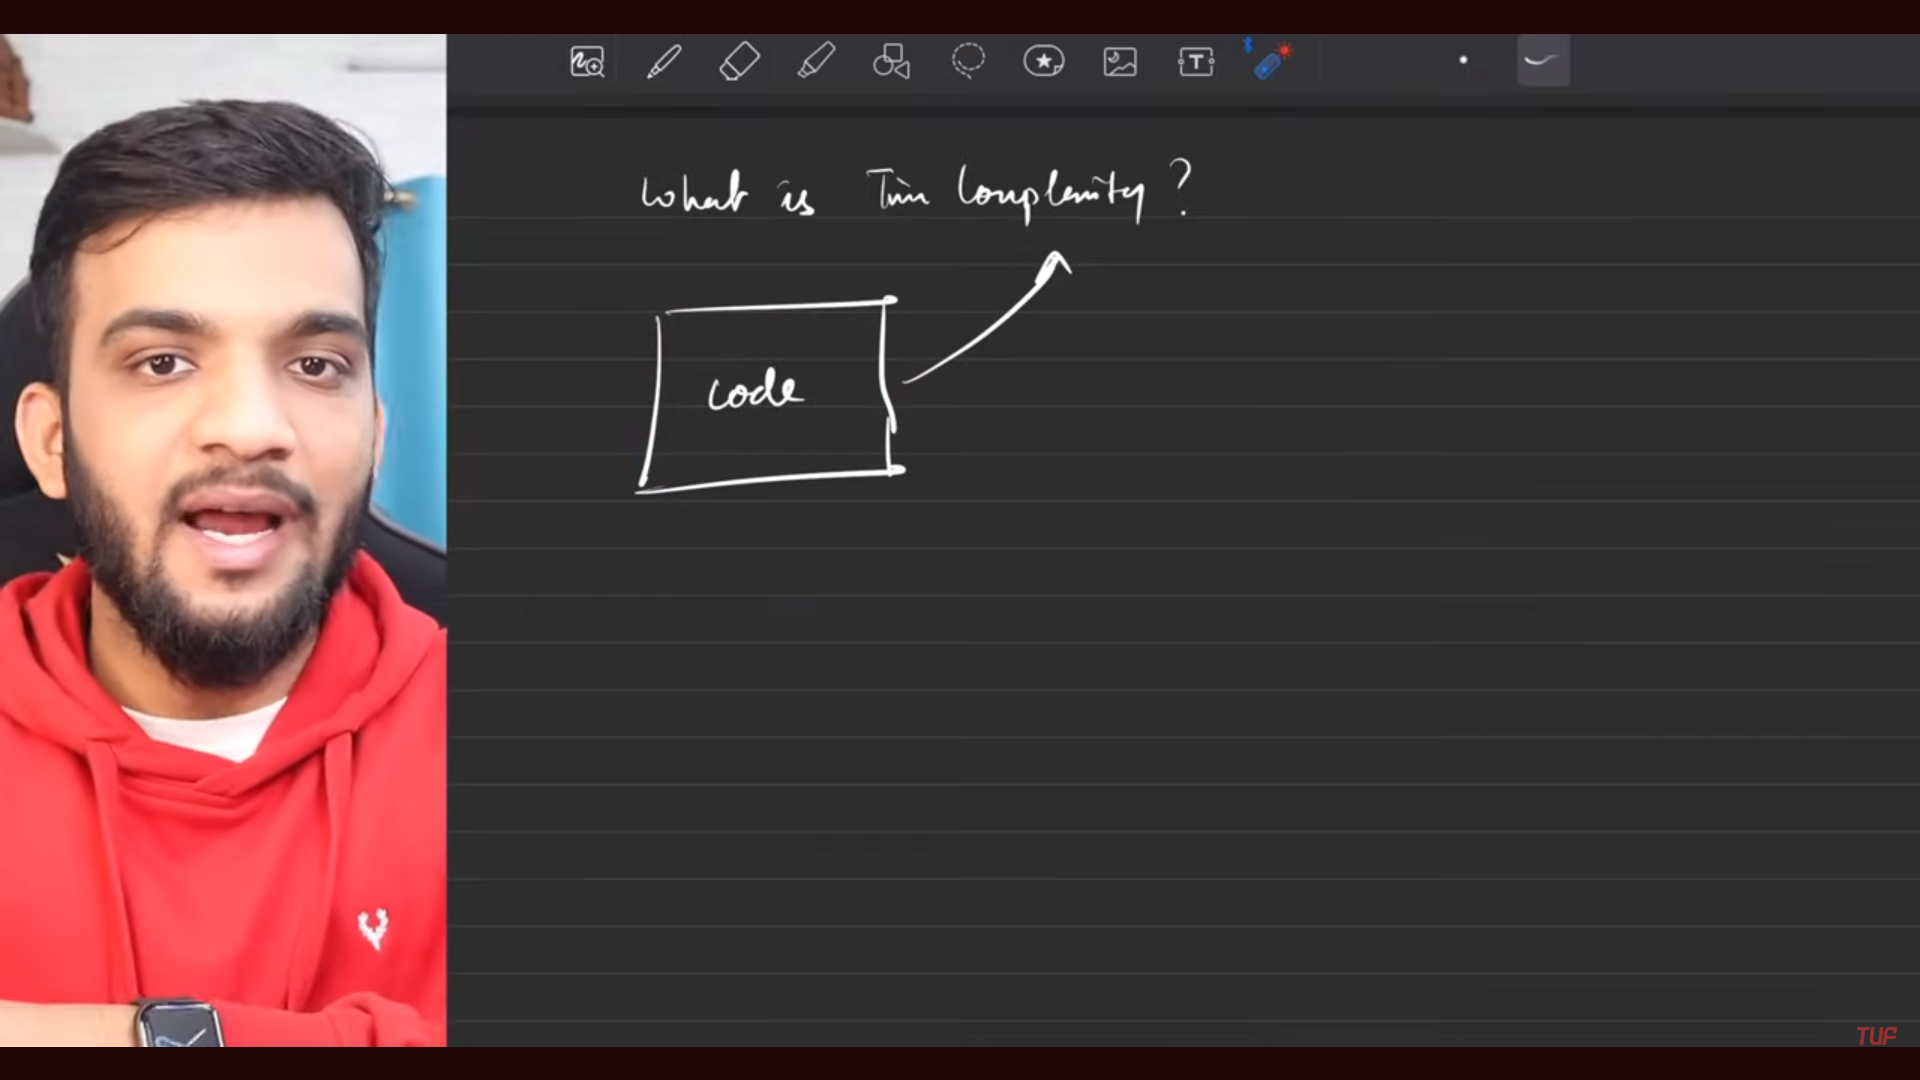 What is Time Complexity?
code
TUF